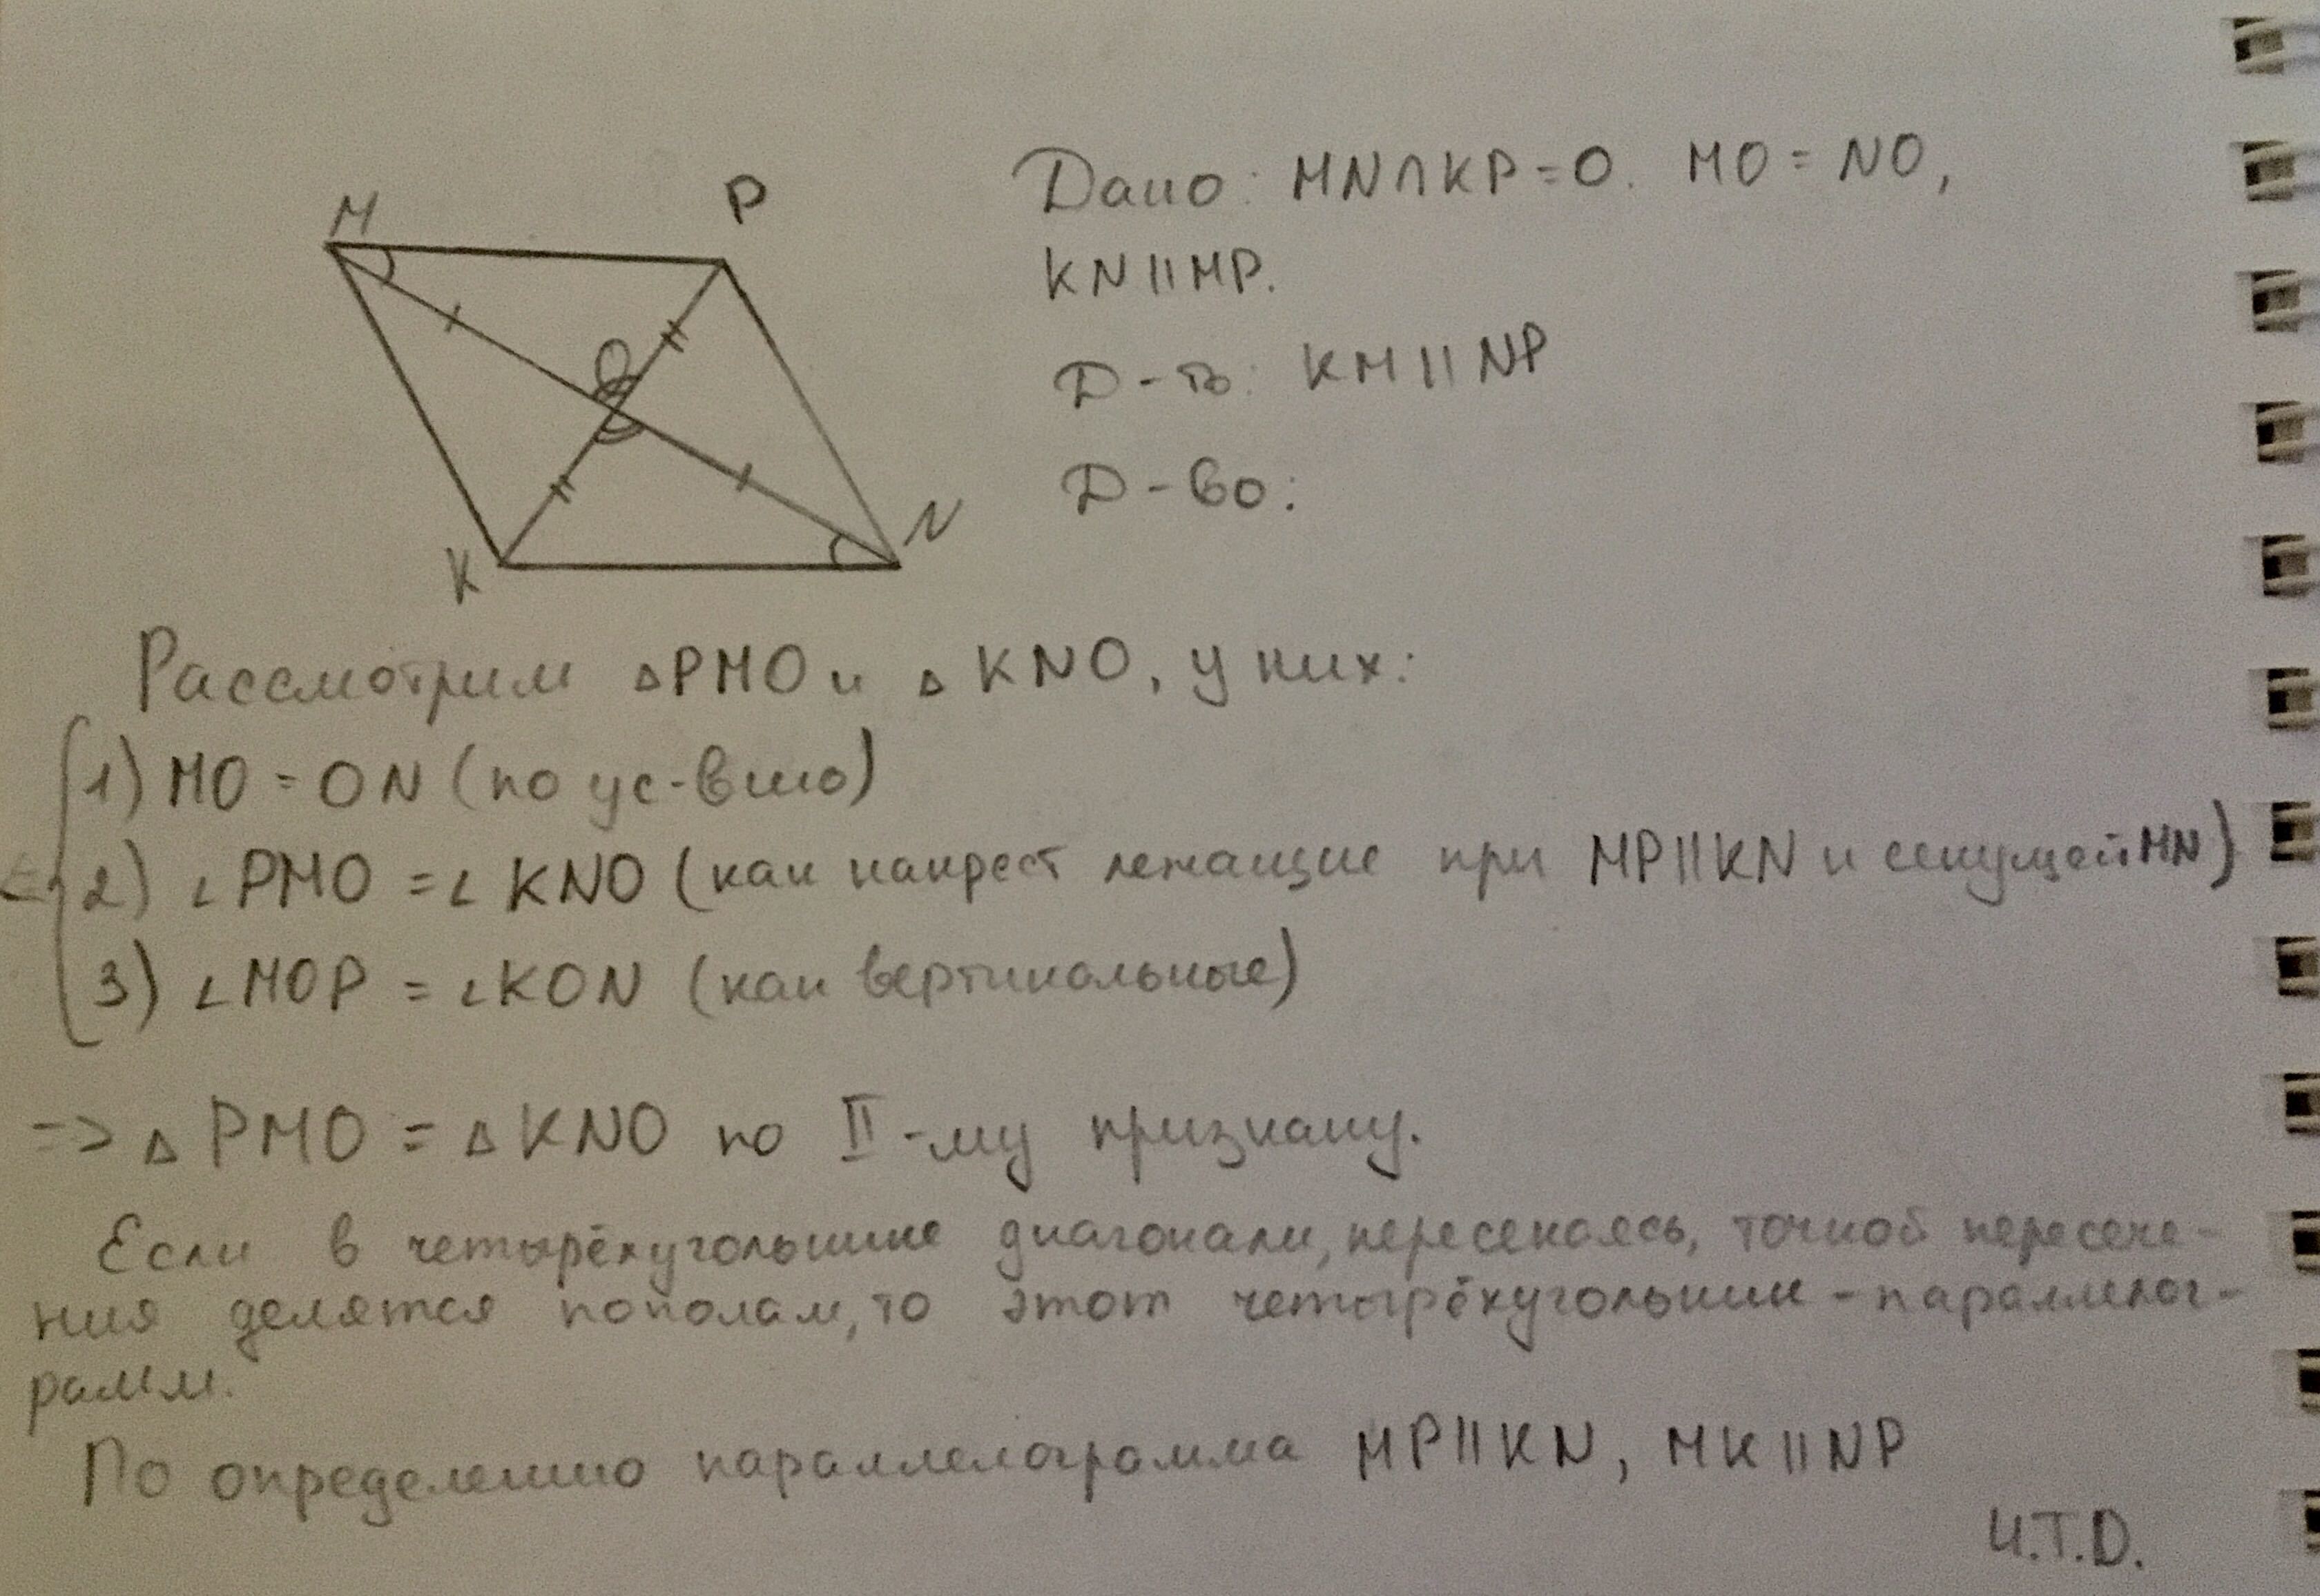 M
P
O
K
N
Дано: MN∩KP=O. MO = NO,
KN || MP.
Д-ть: KM || NP
Д-во:
Рассмотрим △PMO и △KNO, у них:
1) MO = ON (по ус-вию)
2) ∠PMO = ∠KNO (как накрест лежащие при MP||KN и секущей MN)
3) ∠MOP = ∠KON (как вертикальные)
=> △PMO = △KNO по II-му признаку.
Если в четырёхугольнике диагонали, пересекаясь, точкой пересече-
ния делятся пополам, то этот четырёхугольник - параллелог-
рамм.
По определению параллелограмма MP||KN, MK||NP
Ч.Т.D.